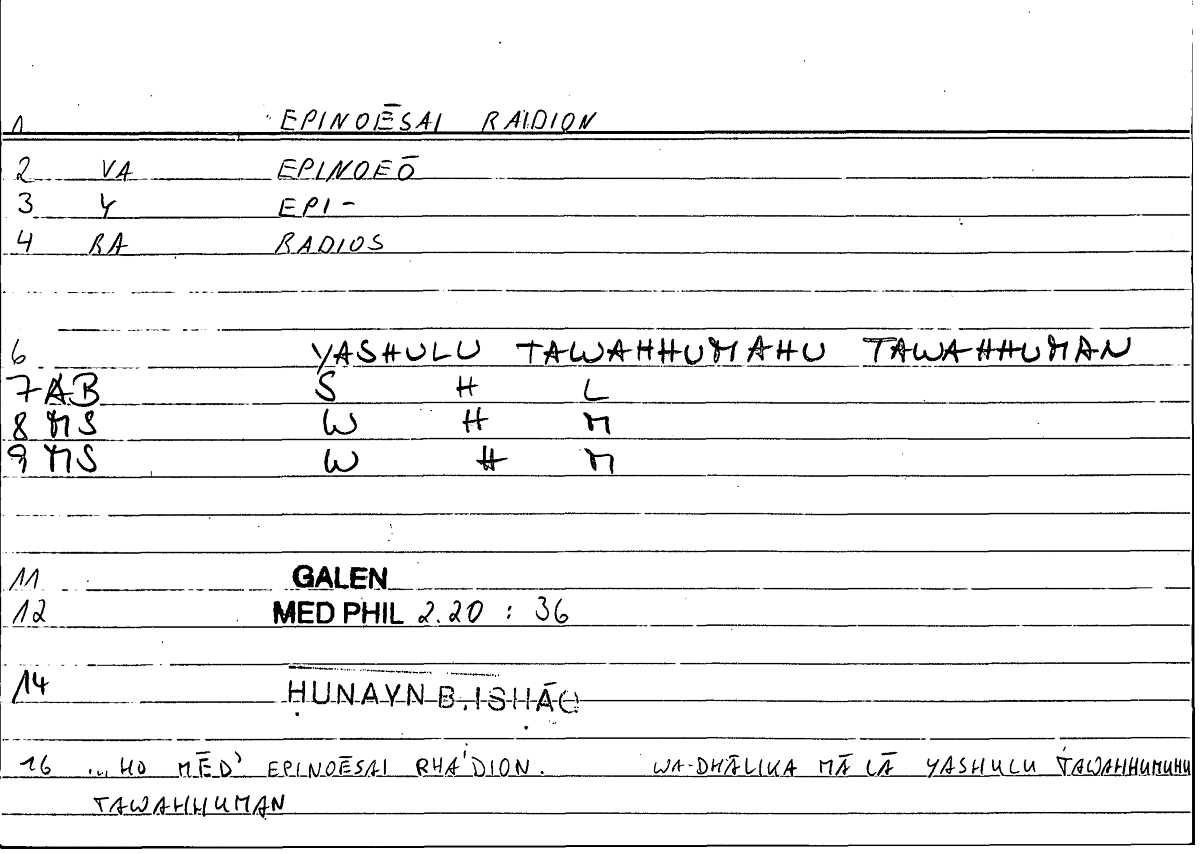 1 EPINOĒSAI RAIDION
2 VA EPINOEŌ
3 Y EPI-
4 RA RADIOS
6 YASHULU TAWAHHUMAHU TAWAHHUMAN
7 AB S H L
8 MS W H M
9 MS W H M
11 GALEN
12 MED PHIL 2.20 : 36
14 ḤUNAYN B. ISḤĀQ
16 ... HO MĒD' EPINOĒSAI RHA'DION. WA-DHĀLIKA MĀ LĀ YASHULU TAWAHHUMUHU
TAWAHHUMAN